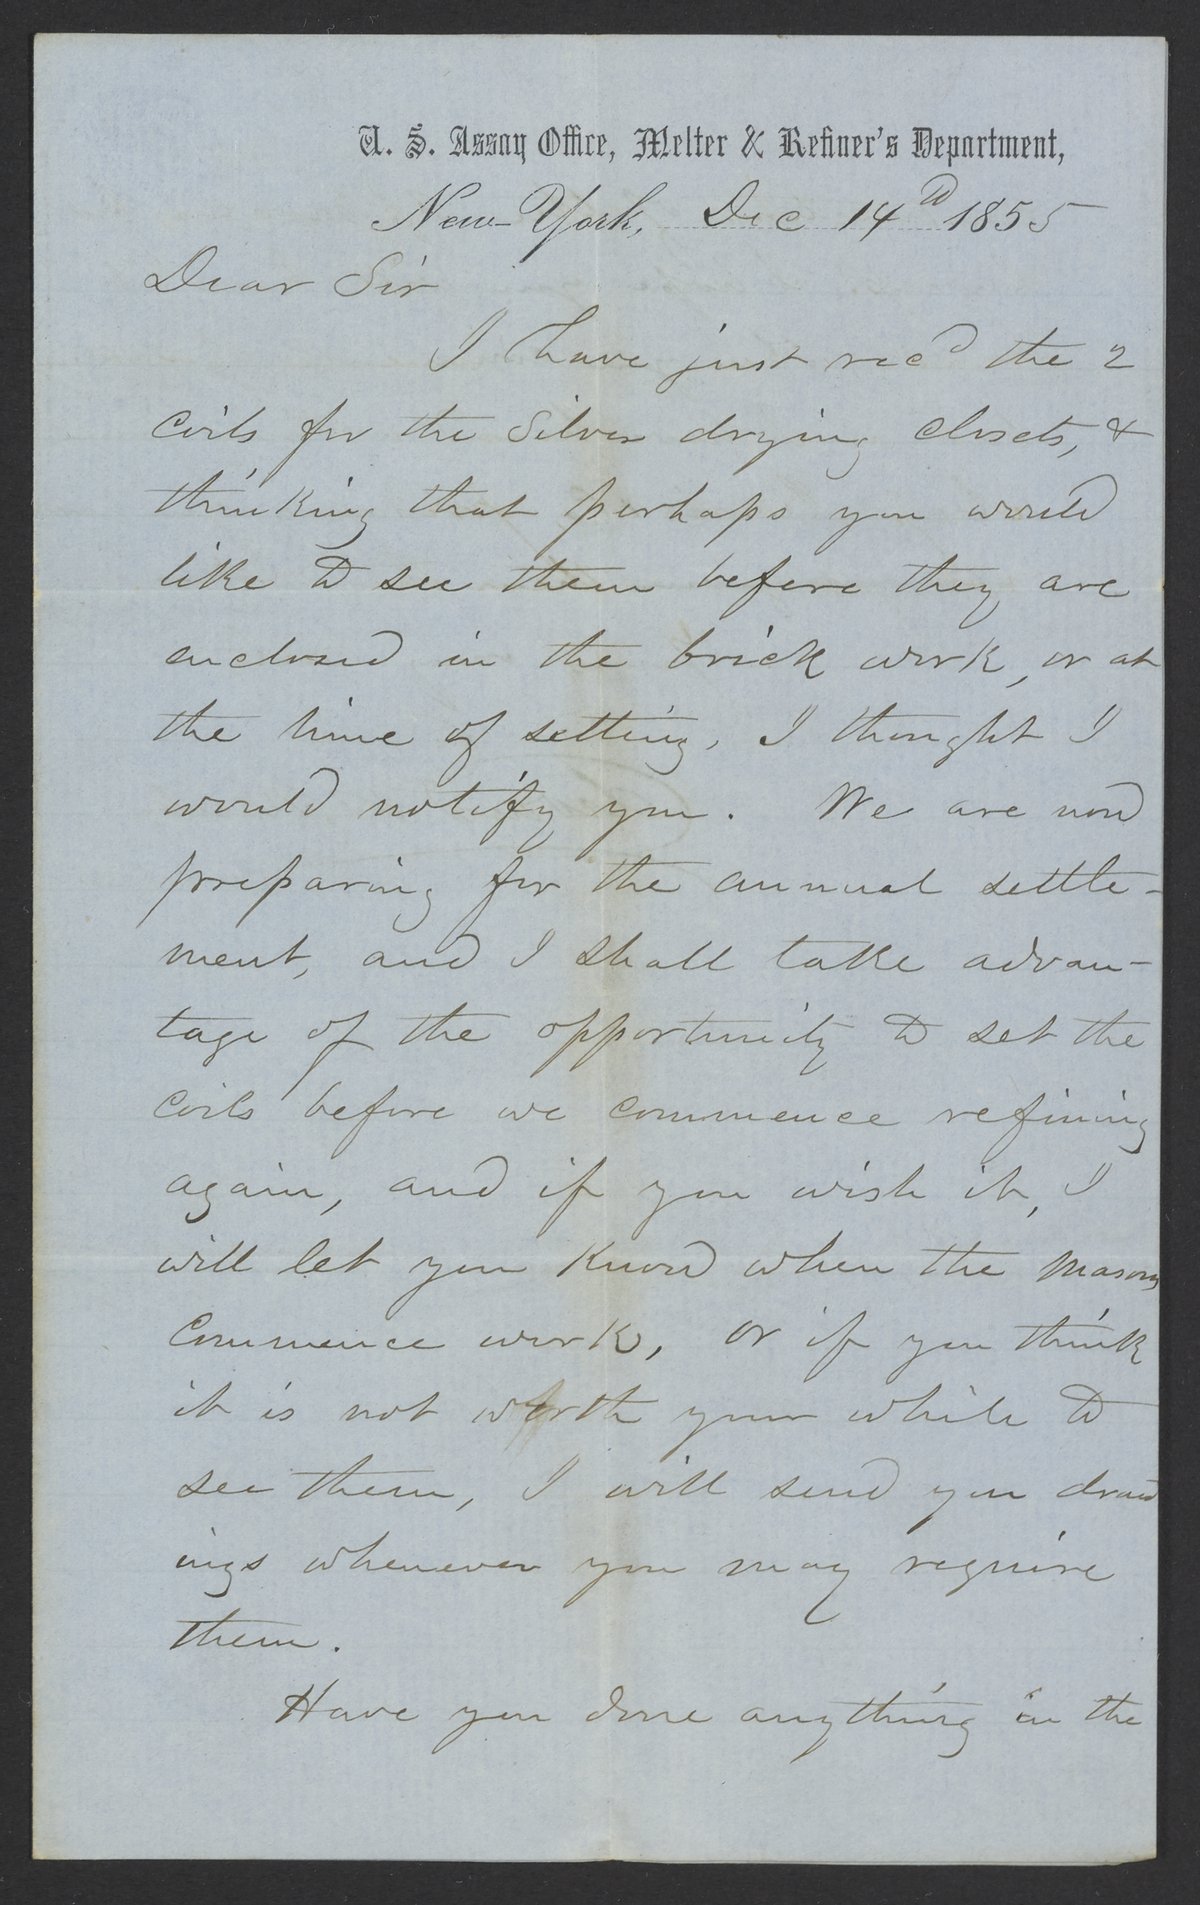 U. S. Assay Office, Melter & Refiner's Department,
New-York, Dec 14th 1855
Dear Sir
I have just recd the 2
coils for the Silver drying closets, &
thinking that perhaps you would
like to see them before they are
enclosed in the brick work, or at
the time of setting, I thought I
would notify you. We are now
preparing for the annual settle-
ment, and I shall take advan-
tage of the opportunity to set the
coils before we commence refining
again, and if you wish it, I
will let you know when the masons
commence work, or if you think
it is not worth your while to
see them, I will send you draw
ings whenever you may require
them.
Have you done anything in the